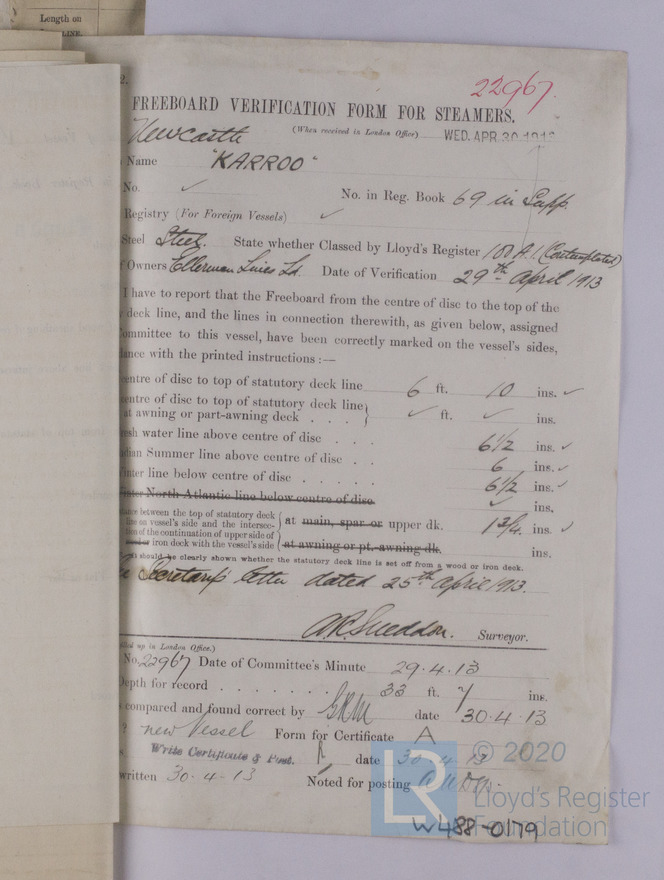 Length on
LINE.
2.
22967.
FREEBOARD VERIFICATION FORM FOR STEAMERS.
Newcastle (When received in London Office) WED. APR. 30 1913
Name "KARROO"
No. ✓ No. in Reg. Book 69 in Supp.
Registry (For Foreign Vessels) ✓
Steel Steel. State whether Classed by Lloyd's Register 100 A.1. (Contemplated)
f Owners Ellerman Lines Ld. Date of Verification 29th April 1913
I have to report that the Freeboard from the centre of disc to the top of the
deck line, and the lines in connection therewith, as given below, assigned
Committee to this vessel, have been correctly marked on the vessel's sides,
dance with the printed instructions :—
centre of disc to top of statutory deck line 6 ft. 10 ins. ✓
centre of disc to top of statutory deck line
at awning or part-awning deck . . . ✓ ft. ✓ ins.
resh water line above centre of disc . . 6 1/2 ins. ✓
ndian Summer line above centre of disc . . 6 ins. ✓
inter line below centre of disc . . . . . 6 1/2 ins. ✓
inter North Atlantic line below centre of disc ✓ ins.
tance between the top of statutory deck
line on vessel's side and the intersec-
tion of the continuation of upper side of
wood or iron deck with the vessel's side
at main, spar or upper dk. 1 3/4 ins. ✓
at awning or pt.-awning dk. ins.
should be clearly shown whether the statutory deck line is set off from a wood or iron deck.
Secretary's letter dated 25th April 1913.
Surveyor.
illed up in London Office.)
No. 22967 Date of Committee's Minute 29.4.13
Depth for record . . . . . . . . 33 ft. 7 ins.
s compared and found correct by date 30.4.13
? new Vessel Form for Certificate A
Write Certificate & Post. date 30.4.13
written 30-4-13 Noted for posting
© 2020
LR Lloyd's Register
Foundation
W488-0179